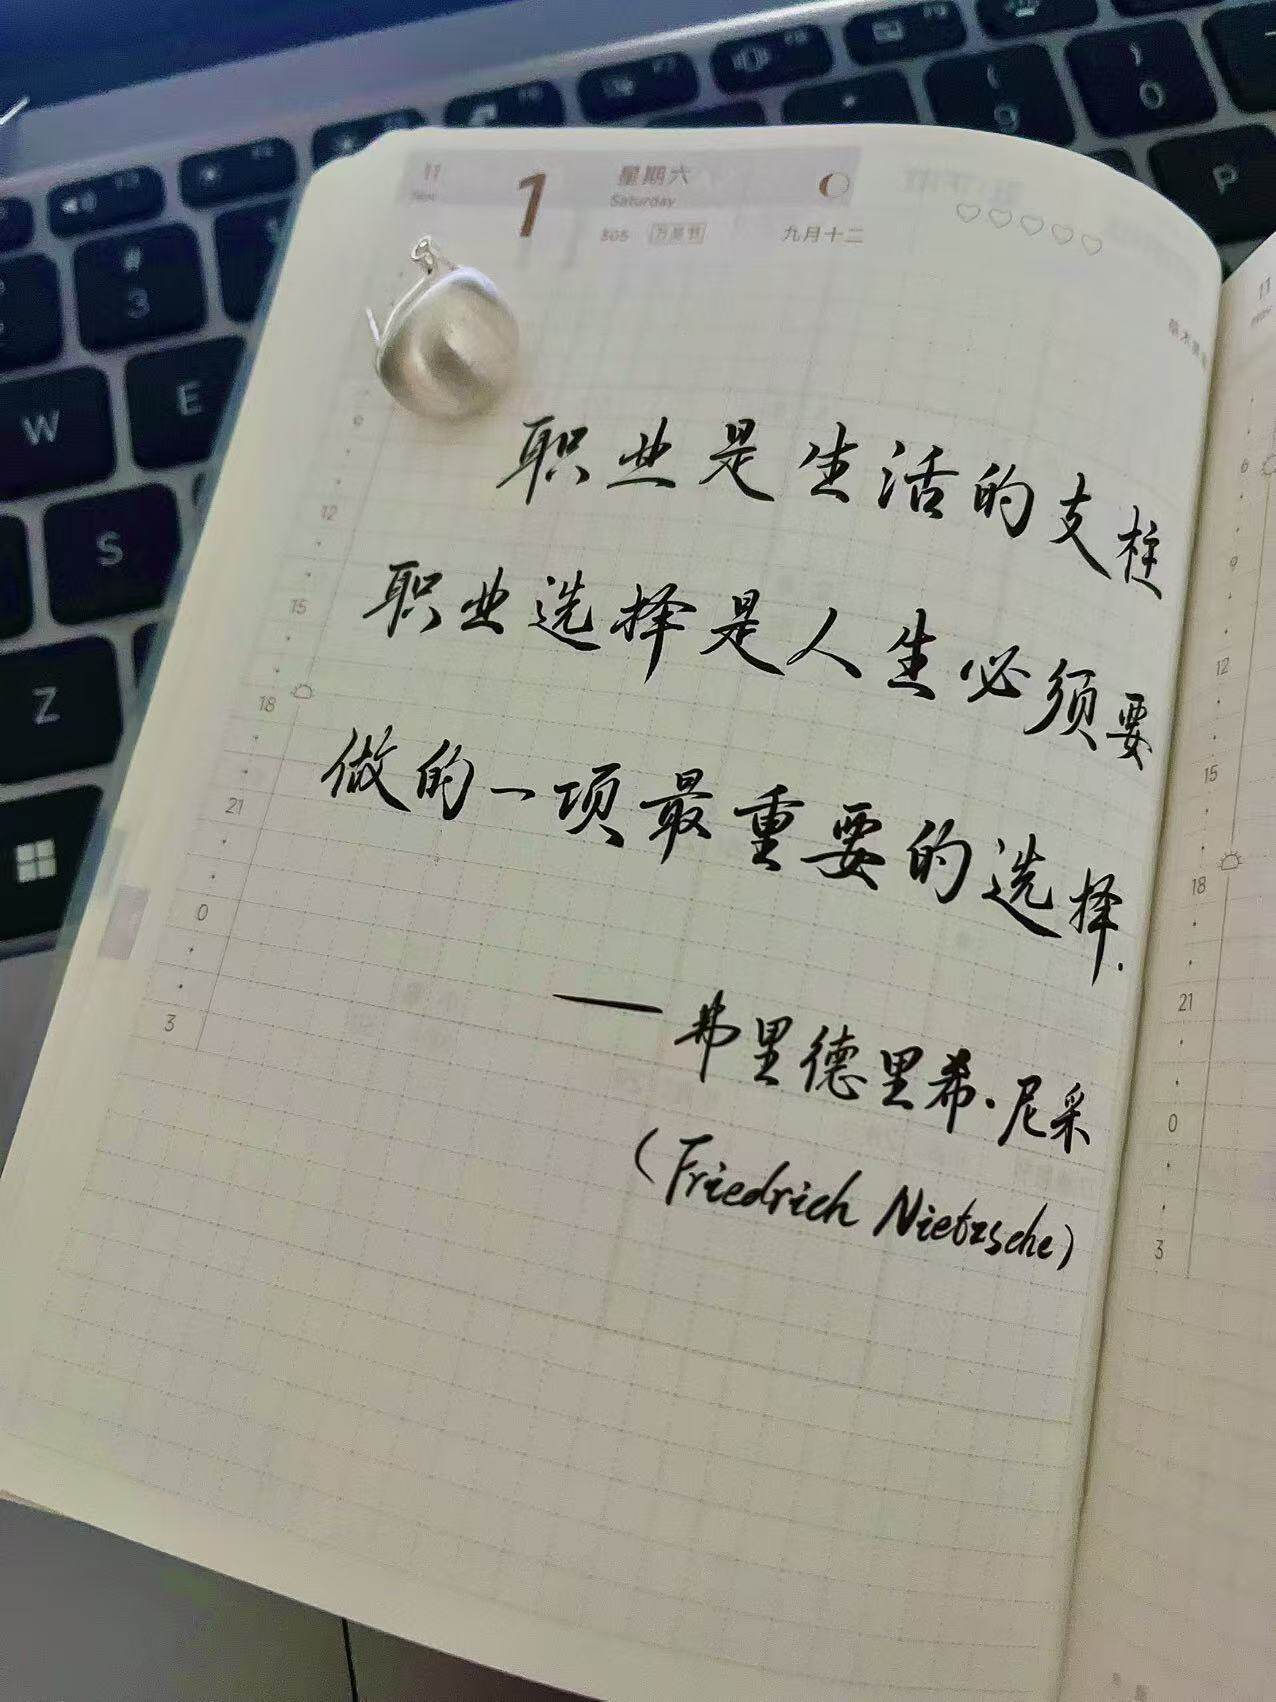 11
1
星期六
Saturday
305 万圣节
九月十二
职业是生活的支柱
职业选择是人生必须要
做的一项最重要的选择.
——弗里德里希·尼采
(Friedrich Nietzsche)
12
15
18
21
0
3
11
6
9
12
15
18
21
0
3
W
E
S
Z
#
3
(
9
)
0
P